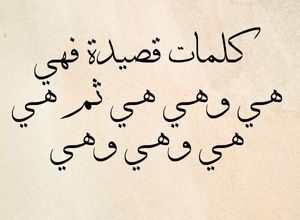 كلمات قصيدة فهي
هي وهي هي ثم هي
هي وهي وهي